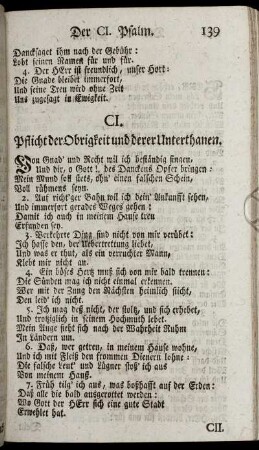 Der CI. Psalm. 139
Dancksaget ihm nach der Gebühr:
Lobt seinen Namen für und für.
4. Der HErr ist freundlich, unser Hort:
Die Gnade bleibet immerfort,
Und seine Treu wird ohne Zeit
Uns zugesagt in Ewigkeit.
CI.
Pflicht der Obrigkeit und derer Unterthanen.
Von Gnad' und Recht wil ich beständig singen,
Und dir, o Gott!, des Danckens Opfer bringen:
Mein Mund soll stets, ohn' einen falschen Schein,
Voll rühmens seyn.
2. Auf richt'ger Bahn wil ich dein' Ankunfft sehen,
Und immerfort gerades Weges gehen:
Damit ich auch in meinem Hause treu
Erfunden sey.
3. Verkehrte Ding sind nicht von mir verübet:
Ich hasse den, der Uebertrettung liebet,
Und was er thut, als ein verruchter Mann,
Klebt mir nicht an.
4. Ein böses Hertz muß sich von mir bald trennen:
Die Sünden mag ich nicht einmal erkennen.
Wer mit der Zung den Nächsten heimlich sticht,
Den leid' ich nicht.
5. Ich mag deß nicht, der stoltz, und sich erhebet,
Und trotziglich in seinem Hochmuth lebet.
Mein Auge sieht sich nach der Wahrheit Ruhm
In Ländern um.
6. Daß, wer getreu, in meinem Hause wohne,
Und ich mit Fleiß den frommen Dienern lohne:
Die falsche Leut' und Lügner stoß' ich aus
Von meinem Hauß.
7. Früh tilg' ich aus, was boßhafft auf der Erden:
Daß alle die bald ausgerottet werden:
Wo Gott der HErr sich eine gute Stadt
Erwehlet hat.
CII.